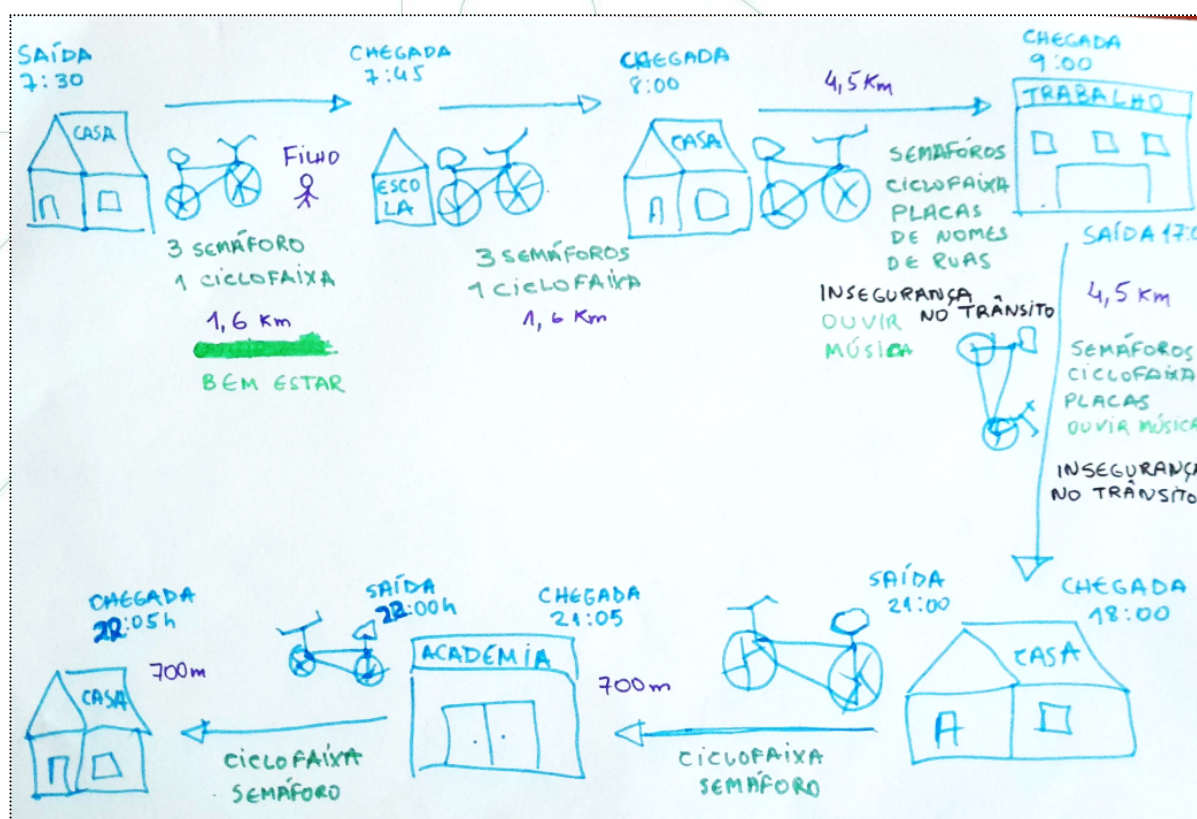 SAÍDA
7:30
CASA
FILHO
3 SEMÁFORO
1 CICLOFAIXA
1,6 Km
BEM ESTAR
CHEGADA
7:45
ESCO
LA
3 SEMÁFOROS
1 CICLOFAIXA
1,6 Km
CHEGADA
8:00
CASA
4,5 Km
SEMAFÓROS
CICLOFAIXA
PLACAS
DE NOMES
DE RUAS
INSEGURANÇA
NO TRÂNSITO
OUVIR
MÚSICA
CHEGADA
9:00
TRABALHO
SAÍDA
4,5 Km
SEMÁFOROS
CICLOFAIXA
PLACAS
OUVIR MÚSICA
INSEGURANÇA
NO TRÂNSITO
CHEGADA
18:00
CASA
SAÍDA
21:00
CICLOFAIXA
SEMÁFORO
700m
CHEGADA
21:05
ACADEMIA
SAÍDA
22:00h
CICLOFAIXA
SEMÁFORO
700m
CHEGADA
22:05h
CASA